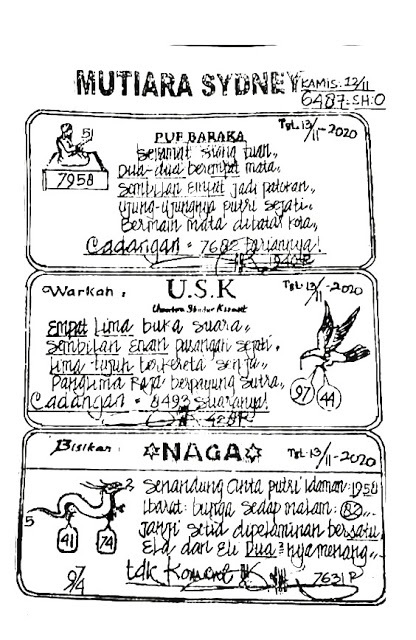 MUTIARA SYDNEY
KAMIS: 12/11
6487:SH:O
Tgl. 13/11-2020
51
7958
PUF BARAKA
Selamat siang tuan,,
Dua-dua berempat mata,,
Sembilan Empat jadi patokan,,
Ujung-ujungnya putri sejati,,
Bermain mata dibatas kota,,
Cadangan = 7682
Warkah :
U.S.K
Tgl. 13/11-2020
Empat Lima buka suara,,
Sembilan Enam pasangan sejati,,
Lima tujuh berkereta senja,,
Panglima Raja berpayung sutra,,
Cadangan = 8493 suaranya!
97 44
Bisikan :
NAGA
Tgl. 13/11-2020
Senandung Cinta putri idaman: 1958
Ibarat bunga sedap malam: 82,,
Janji setia dipelaminan bersatu
Ela dan Eli Dua²nya menang,,
5
2
41 74
97/4
tdk Koment
7631 R